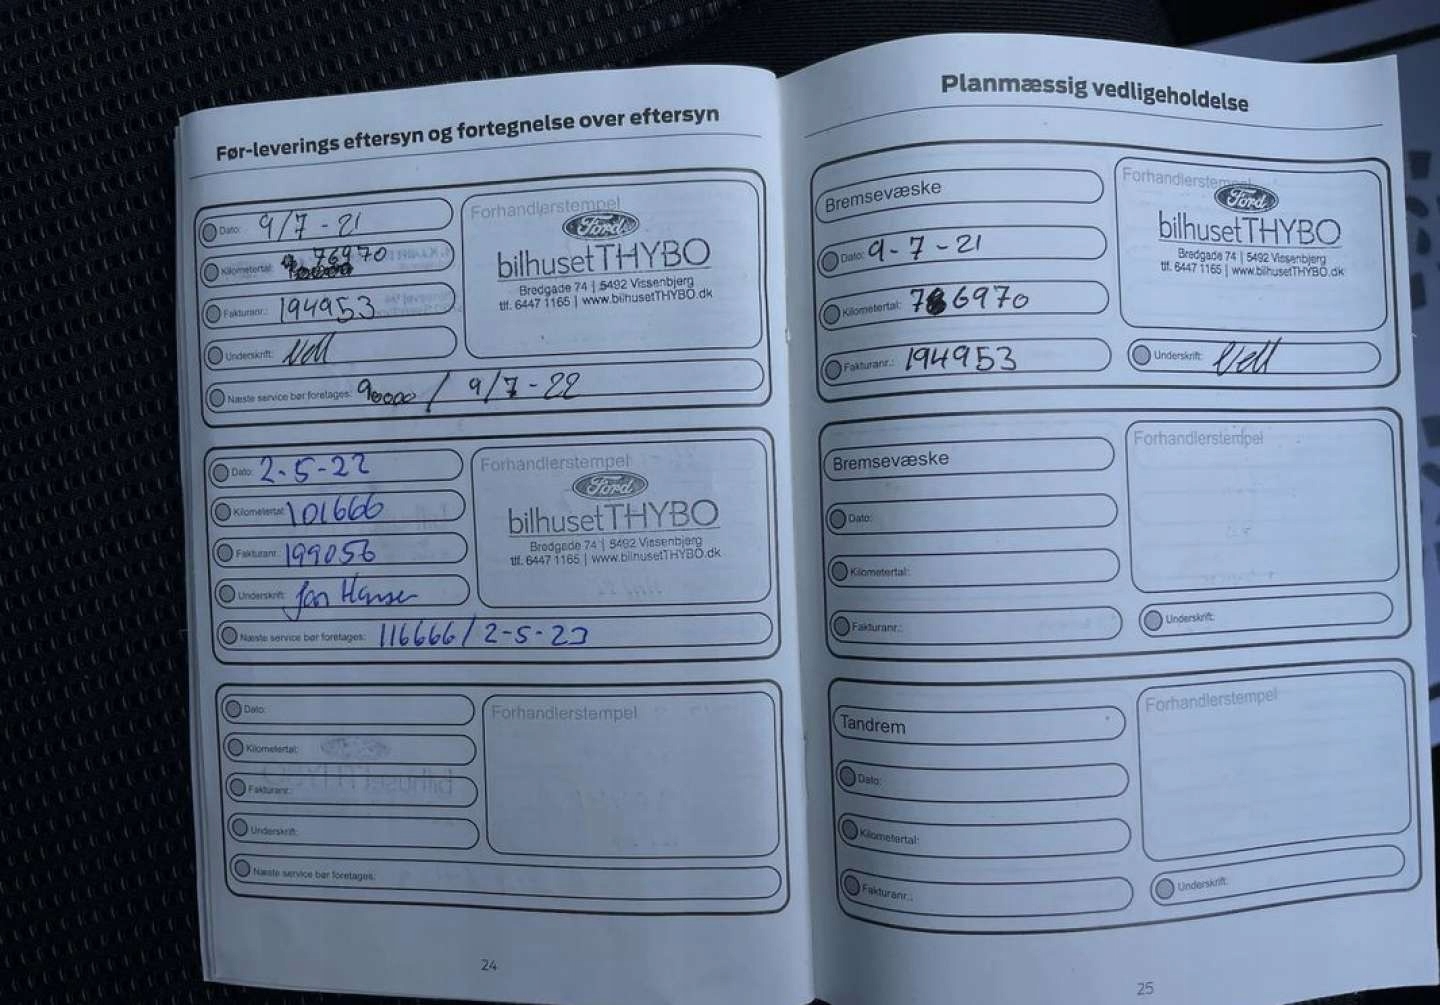 Før-leverings eftersyn og fortegnelse over eftersyn
Dato: 9/7 - 21
Kilometertal: 76970
Fakturanr.: 194953
Underskrift:
Næste service bør foretages: 90000 / 9/7 - 22
Forhandlerstempel
Ford
bilhusetTHYBO
Bredgade 74 | 5492 Vissenbjerg
tlf. 6447 1165 | www.bilhusetTHYBO.dk
Dato: 2-5-22
Kilometertal: 101666
Fakturanr.: 199056
Underskrift: Jan Hansen
Næste service bør foretages: 116666 / 2-5-23
Forhandlerstempel
Ford
bilhusetTHYBO
Bredgade 74 | 5492 Vissenbjerg
tlf. 6447 1165 | www.bilhusetTHYBO.dk
Dato:
Kilometertal:
Fakturanr.:
Underskrift:
Næste service bør foretages:
Forhandlerstempel
24
Planmæssig vedligeholdelse
Bremsevæske
Dato: 9-7-21
Kilometertal: 76970
Fakturanr.: 194953
Forhandlerstempel
Ford
bilhusetTHYBO
Bredgade 74 | 5492 Vissenbjerg
tlf. 6447 1165 | www.bilhusetTHYBO.dk
Underskrift:
Bremsevæske
Dato:
Kilometertal:
Fakturanr.:
Forhandlerstempel
Underskrift:
Tandrem
Dato:
Kilometertal:
Fakturanr.:
Forhandlerstempel
Underskrift:
25